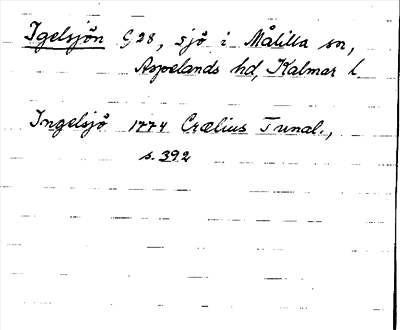 Igelsjön G 28, sjö i Målilla sn,
Aspelands hd, Kalmar l.
Ingelsjö 1774 Crælius Tunal.,
s. 392